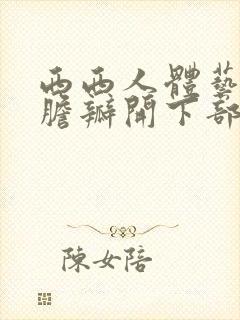 西西人體藝
膽瓣開下部
陳女陪